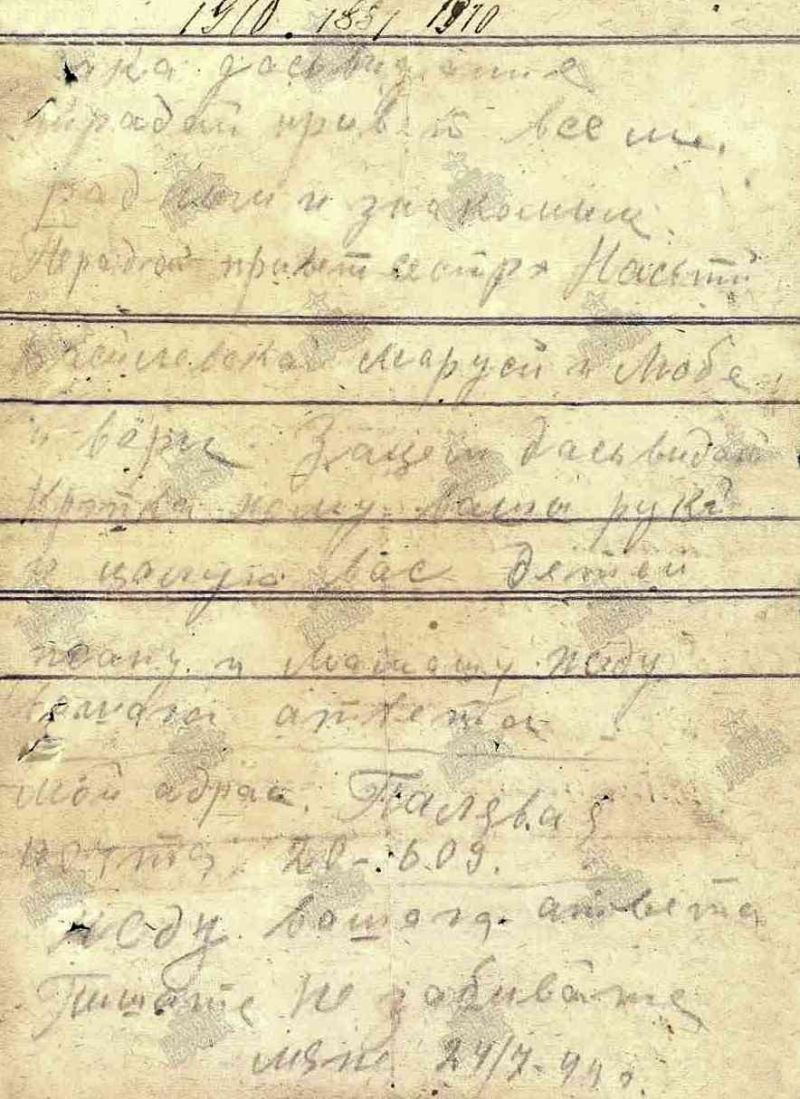 1910. 1881 1910
пка дасьвидание
пирадай привет всем.
радным и знакомым.
Перадай привет сестре Насьти
Василевской Маруси и Любе
и вари. Затем дасьвидан
Крепка жму ваши руки
и цалую вас детей
и Мамашу жду
вашаго атвета
мой адрас. Палявая
почта. 20-609.
жеду вашаго атвета
Пишите не забивайте
мяне 24/7-44 г.